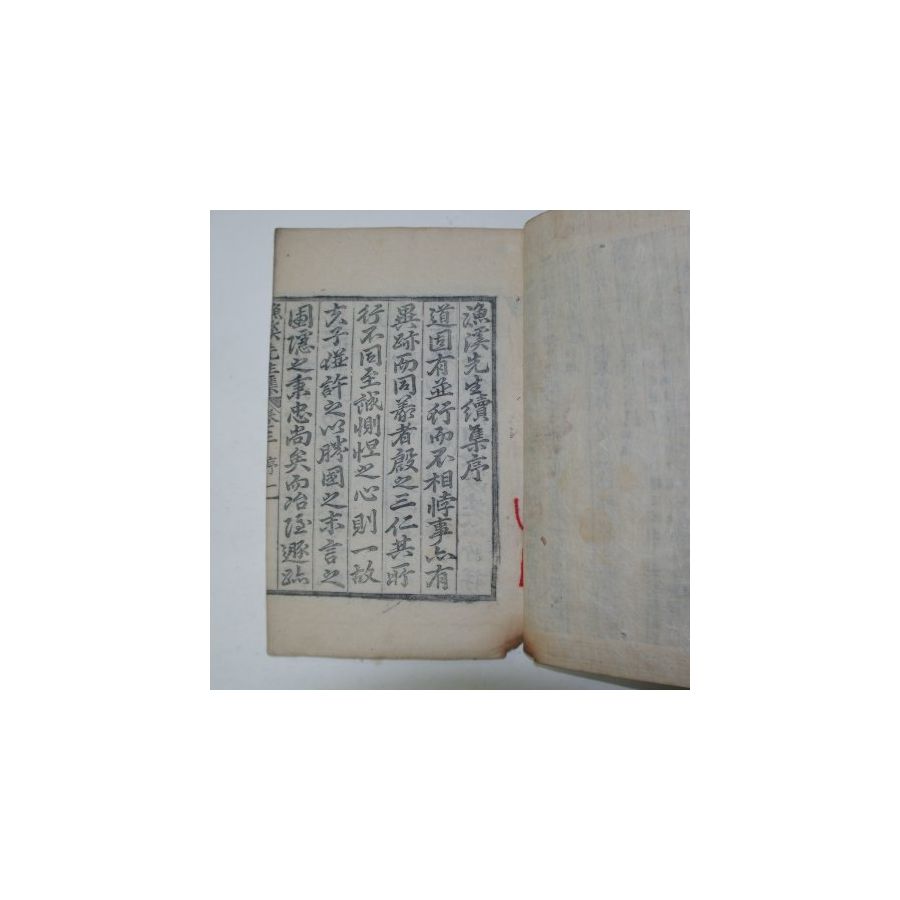 漁溪先生續集序
道固有並行而不相悖事亦有
異跡而同義者殷之三仁其所
行不同至誠惻怛之心則一故
夫子並許之以勝國之末言之
圃隱之秉忠尚矣而冶隱遯跡
漁溪先生集卷之三 序 一